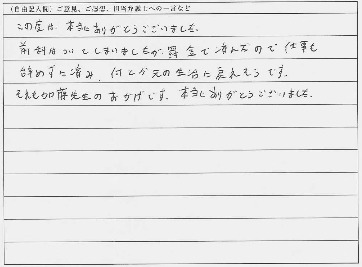 (自由記入欄) ご意見、ご感想、担当弁護士への一言など
この度は、本当にありがとうございました。
前科はついてしまいましたが、罰金で済んだので仕事も
辞めずに済み、何とか元の生活に戻れそうです。
それも加藤先生のおかげです。本当にありがとうございました。